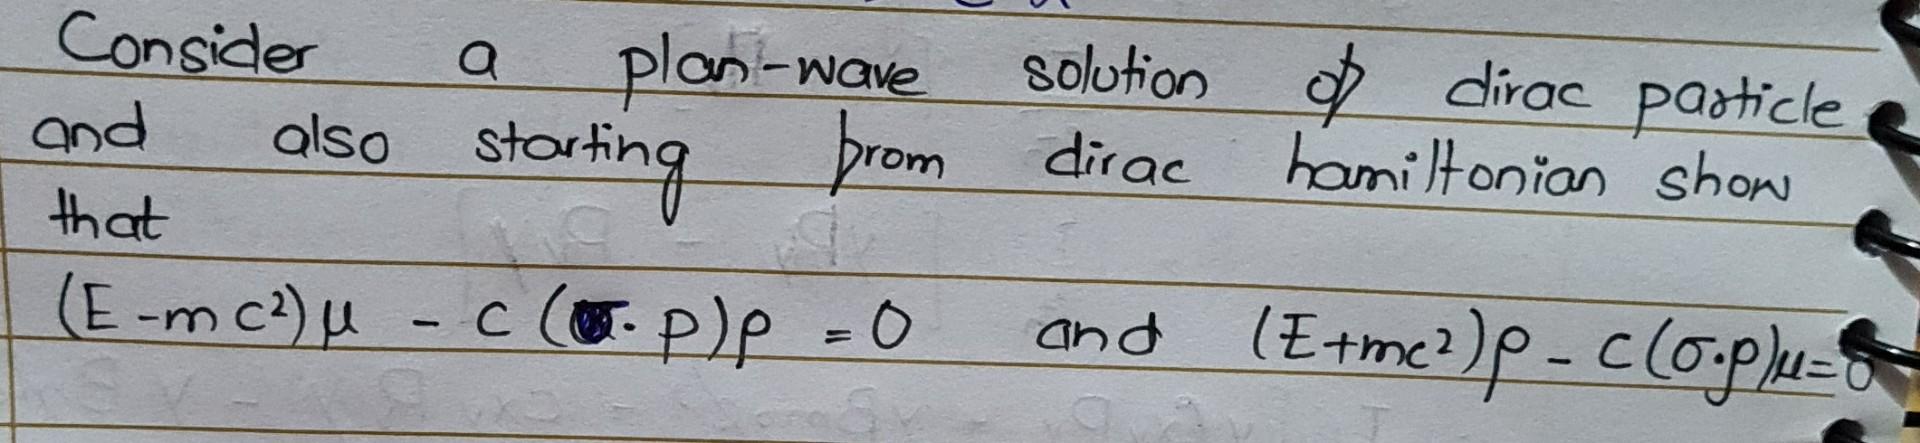 Consider a plan-wave solution of dirac particle
and also starting from dirac hamiltonian show
that
(E-mc²)μ - c(σ.p)ρ = 0 and (E+mc²)ρ - c(σ.p)μ=0